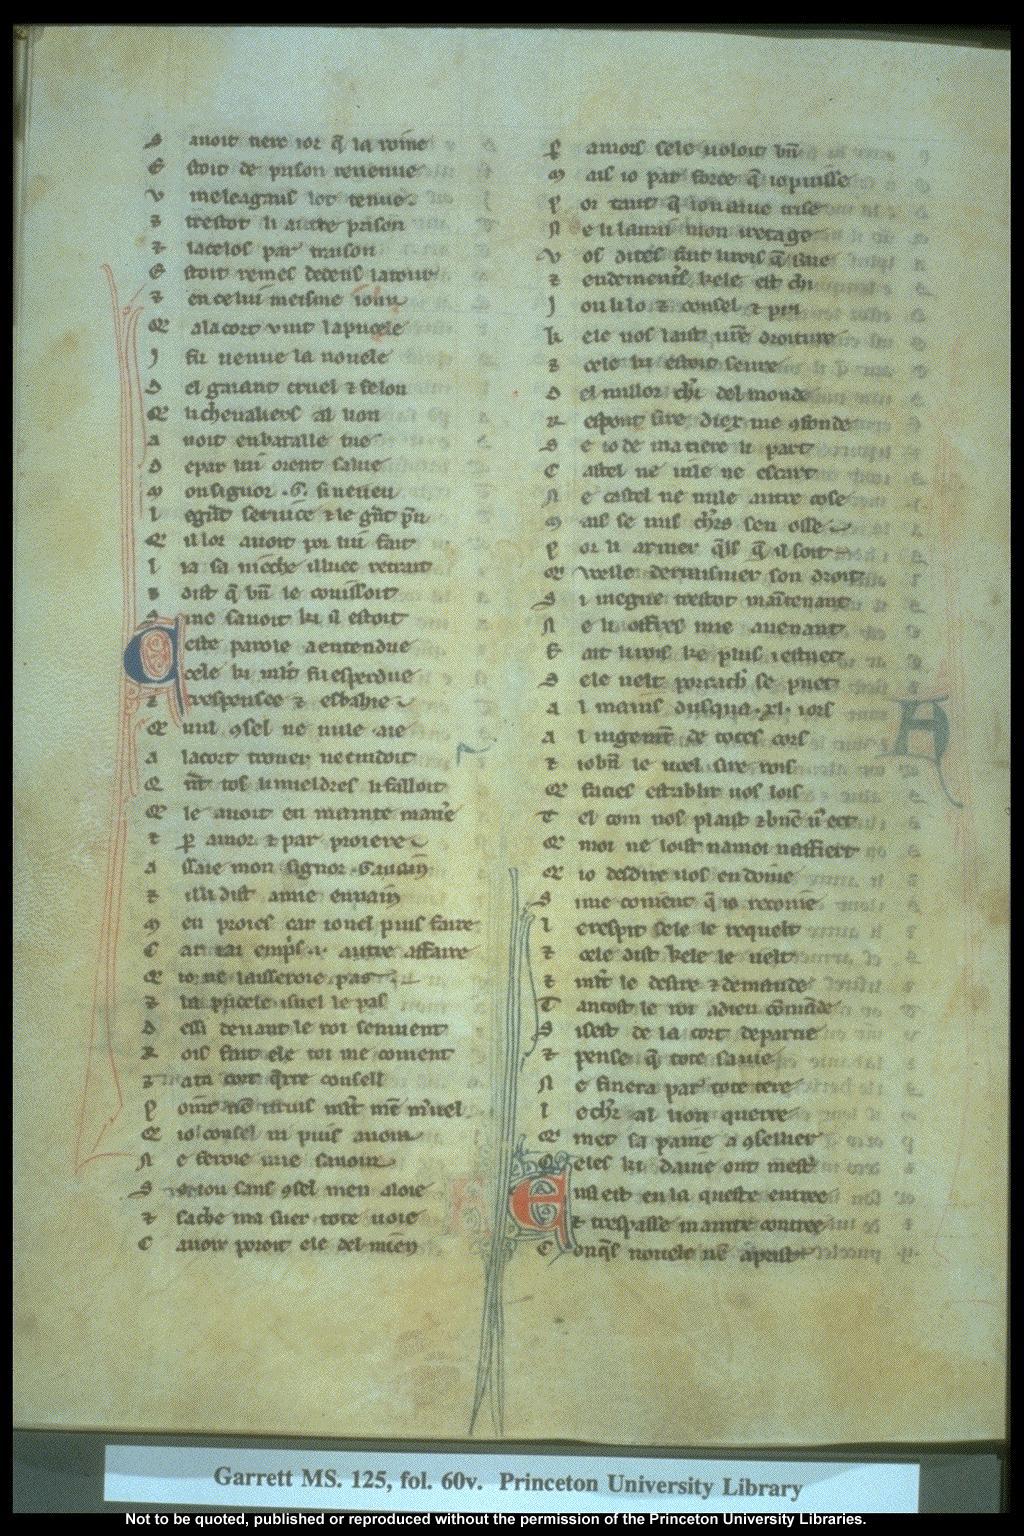 S avoit tierc ior q̃ la roine
E stoit de prison revenue
V meleagans lot tenue
⁊ trestot li autre prison
⁊ lacelos par traison
E stoit remes dedens la tour
⁊ en celui meisme iour
Q̃ a la cort vint la pucele
J fu venue la novele
D el gaiant cruel ⁊ felon
Q̃ li chevaliers al lion
A voit en bataille
D e par lui orent salue
M onsignor .G. si neveu
L e g̃nt service ⁊ le g̃nt p̃u
Q̃ il lor avoit por lui fait
L ia sa niece illuec retrait
⁊ dist q̃ bñ le conissoit
S ne savoit ki il estoit
C este parole a entendue
cele ki m̃lt fu esperdue
⁊ trespensee ⁊ esbahie
Q̃ nul 9sel ne nule aie
A la cort trover ne cuidoit
Q̃nt tos li mieldres li falloit
Q̃ le avoit en mainte maniẽ
T p̱ amor ⁊ par proiere
A ssaie mon signor Gauvaĩ
⁊ il li dist amie en vaĩ
M en proies car io nel puis faire
C ar iai empͥs .i. autre affaire
Q̃ io ne laisseroie pas
⁊ la pucele isnel le pas
D essi devant le roi sen vient
R ois fait ele toi me covient
⁊ a ta cort q̃rre conseil
P oĩt nẽ truis m̃lt mẽ mͥvel
Q̃ io 9sel ni puis avoir
N e feroie mie savoir
S e iou sans 9sel men aloie
⁊ sache ma suer tote voie
C avoir poroit ele del mien
P amors sele voloit bñ
M ais io par force q̃ io puisse
P or tant q̃ ion aiue truise
N e li lairai mon iretage
V os dites fait li rois q̃ sage
⁊ endementͥs kele est chi
J ou li lo ⁊ consel ⁊ pri
K ele vos laist vr̃e droiture
⁊ cele ki estoit seure
D el millor chr̃ del monde
R espont sire diex me 9fonde
S e io de ma tiere li part
C astel ne vile ne essart
N e castel ne vile autre cose
M ais se nus chr̃s sen ose
P or li armer q̃ls q̃ il soit
Q̃ velle deraisnier son droit
S i viegne trestot maĩtenant
N e li offres mie avenant
F ait li rois ke plus i estuet
S ele velt porcachr̃ se puet
A l mains dusqua .xl. iors
A l iugemẽt de totes cors
⁊ io bñ le voel sire rois
Q̃ faites establir vos lois
T el com vos plaist ⁊ bñ v̾ ert
Q̃ moi ne loist na moi naffiert
Q̃ io desdire vos en doie
S mie covient q̃ io recoivẽ
L e respit sele le requelt
⁊ cele dist kele le velt
⁊ m̃lt le desire ⁊ demande
T antost le roi a dieu cõmãde
S i sest de la cort departie
⁊ pense q̃ tote sa vie
N e finera par tote tere
L e chr̃ al lion querre
Q̃ met sa paine a 9sellier
celes ki daiue ont mestͥ
E nsi est en la queste entree
⁊ trespasse mainte contree
C onq̃s novele nẽ aprist
A
Garrett MS. 125, fol. 60v. Princeton University Library
Not to be quoted, published or reproduced without the permission of the Princeton University Libraries.